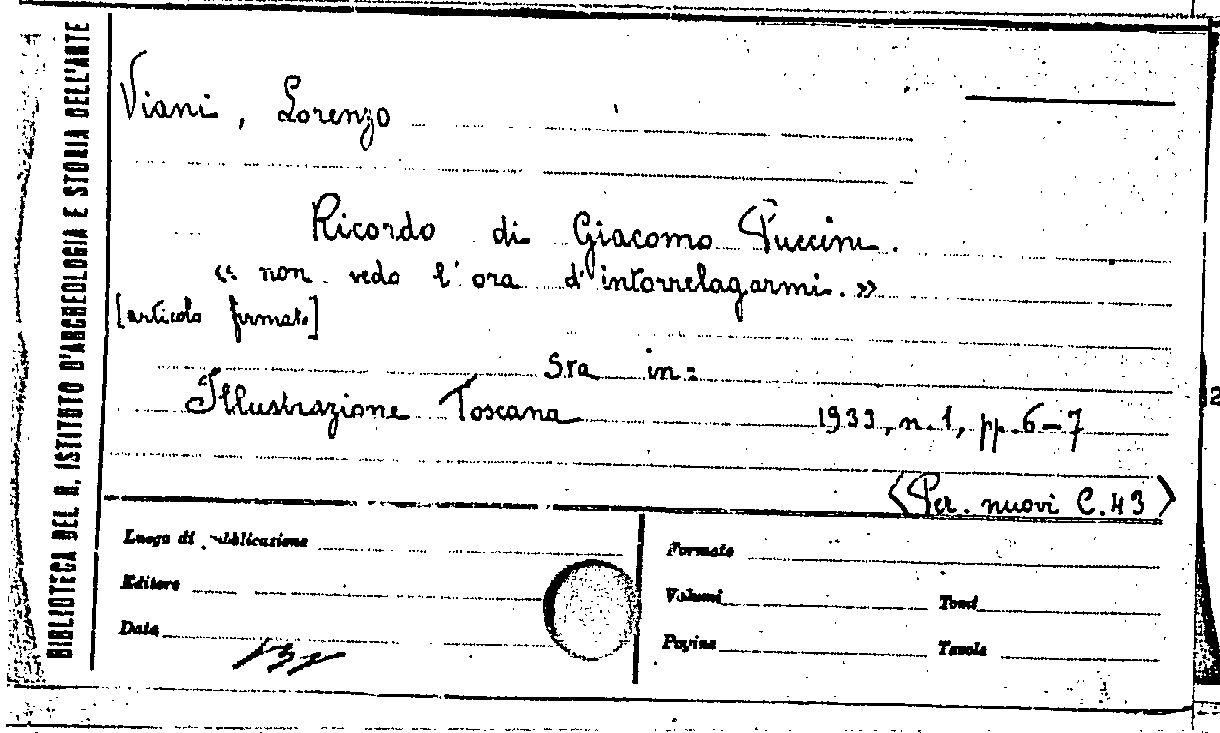 BIBLIOTECA DEL R. ISTITUTO D'ARCHEOLOGIA E STORIA DELL'ARTE
Viani, Lorenzo
Ricordo di Giacomo Puccini.
« non vedo l'ora d'intorrelagarmi. »
[articolo firmato]
Sta in:
Illustrazione Toscana 1933, n. 1, pp. 6-7
<Per. nuovi C. 43>
Luogo di pubblicazione
Editore
Data
Formato
Volumi Tomi
Pagine Tavole